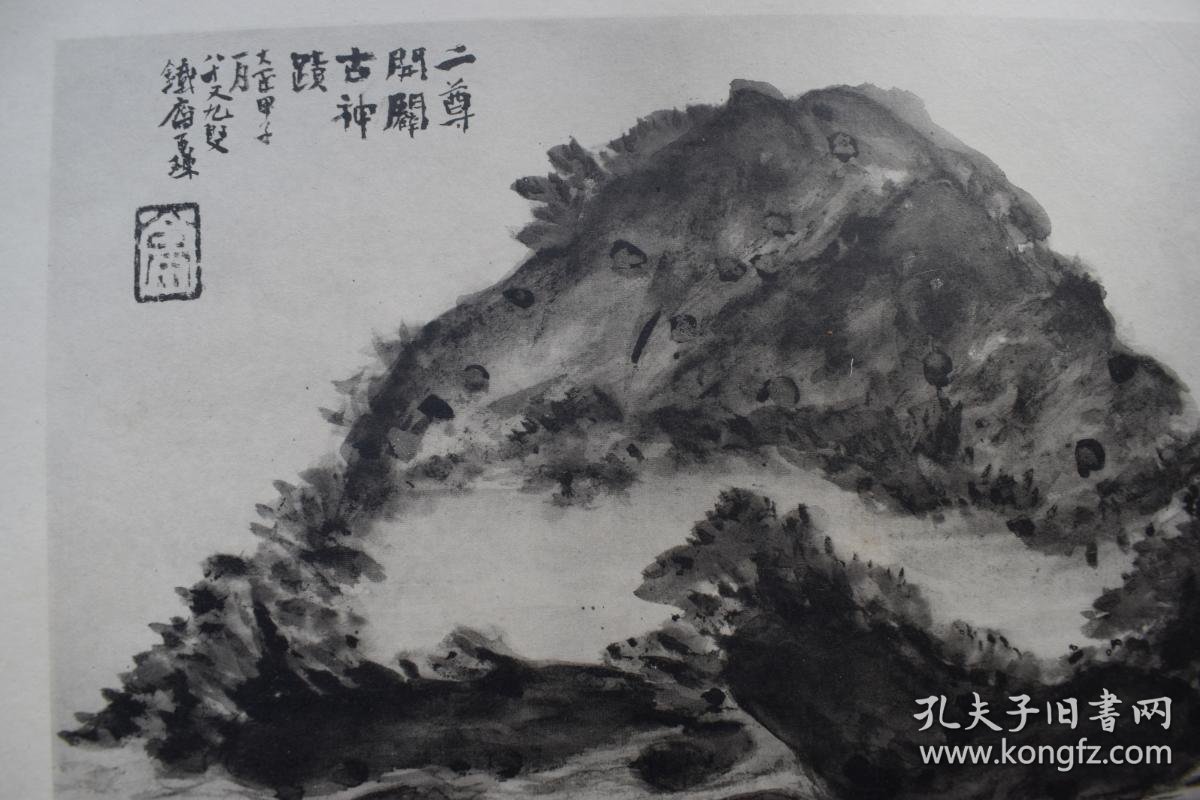 二尊
開闢
古神
蹟
大正甲子
一月
八十又九叟
鐵齋百鍊
孔夫子旧書网
www.kongfz.com